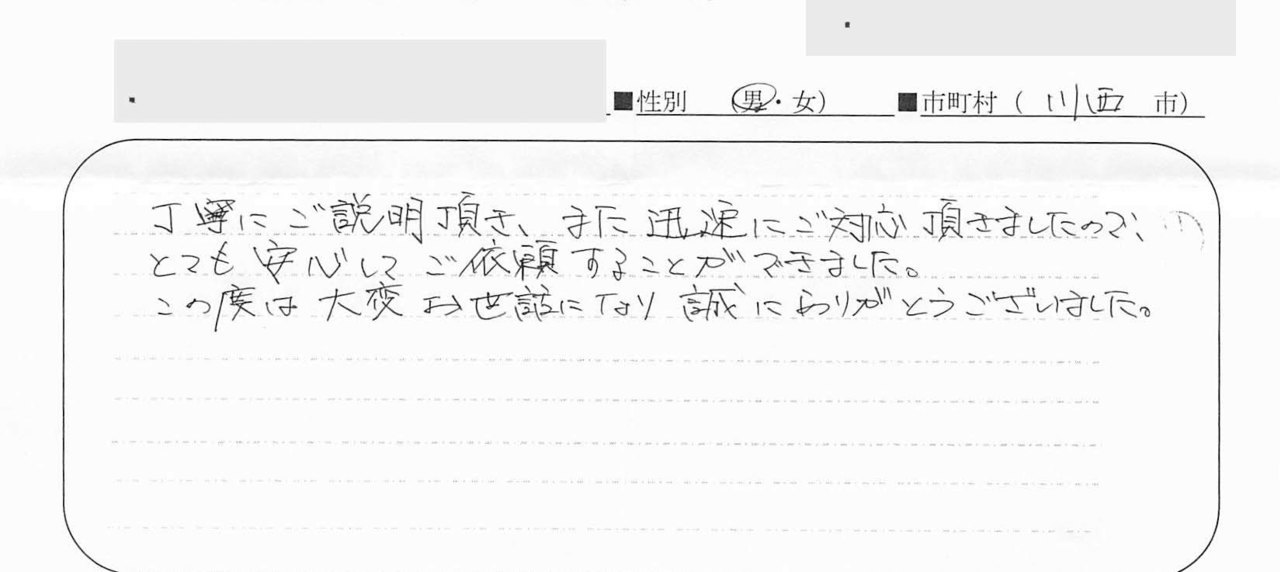 ■性別 (男・女) ■市町村 ( 川西 市)
丁寧にご説明頂き、また迅速にご対応頂きましたので、
とても安心してご依頼することができました。
この度は大変お世話になり誠にありがとうございました。